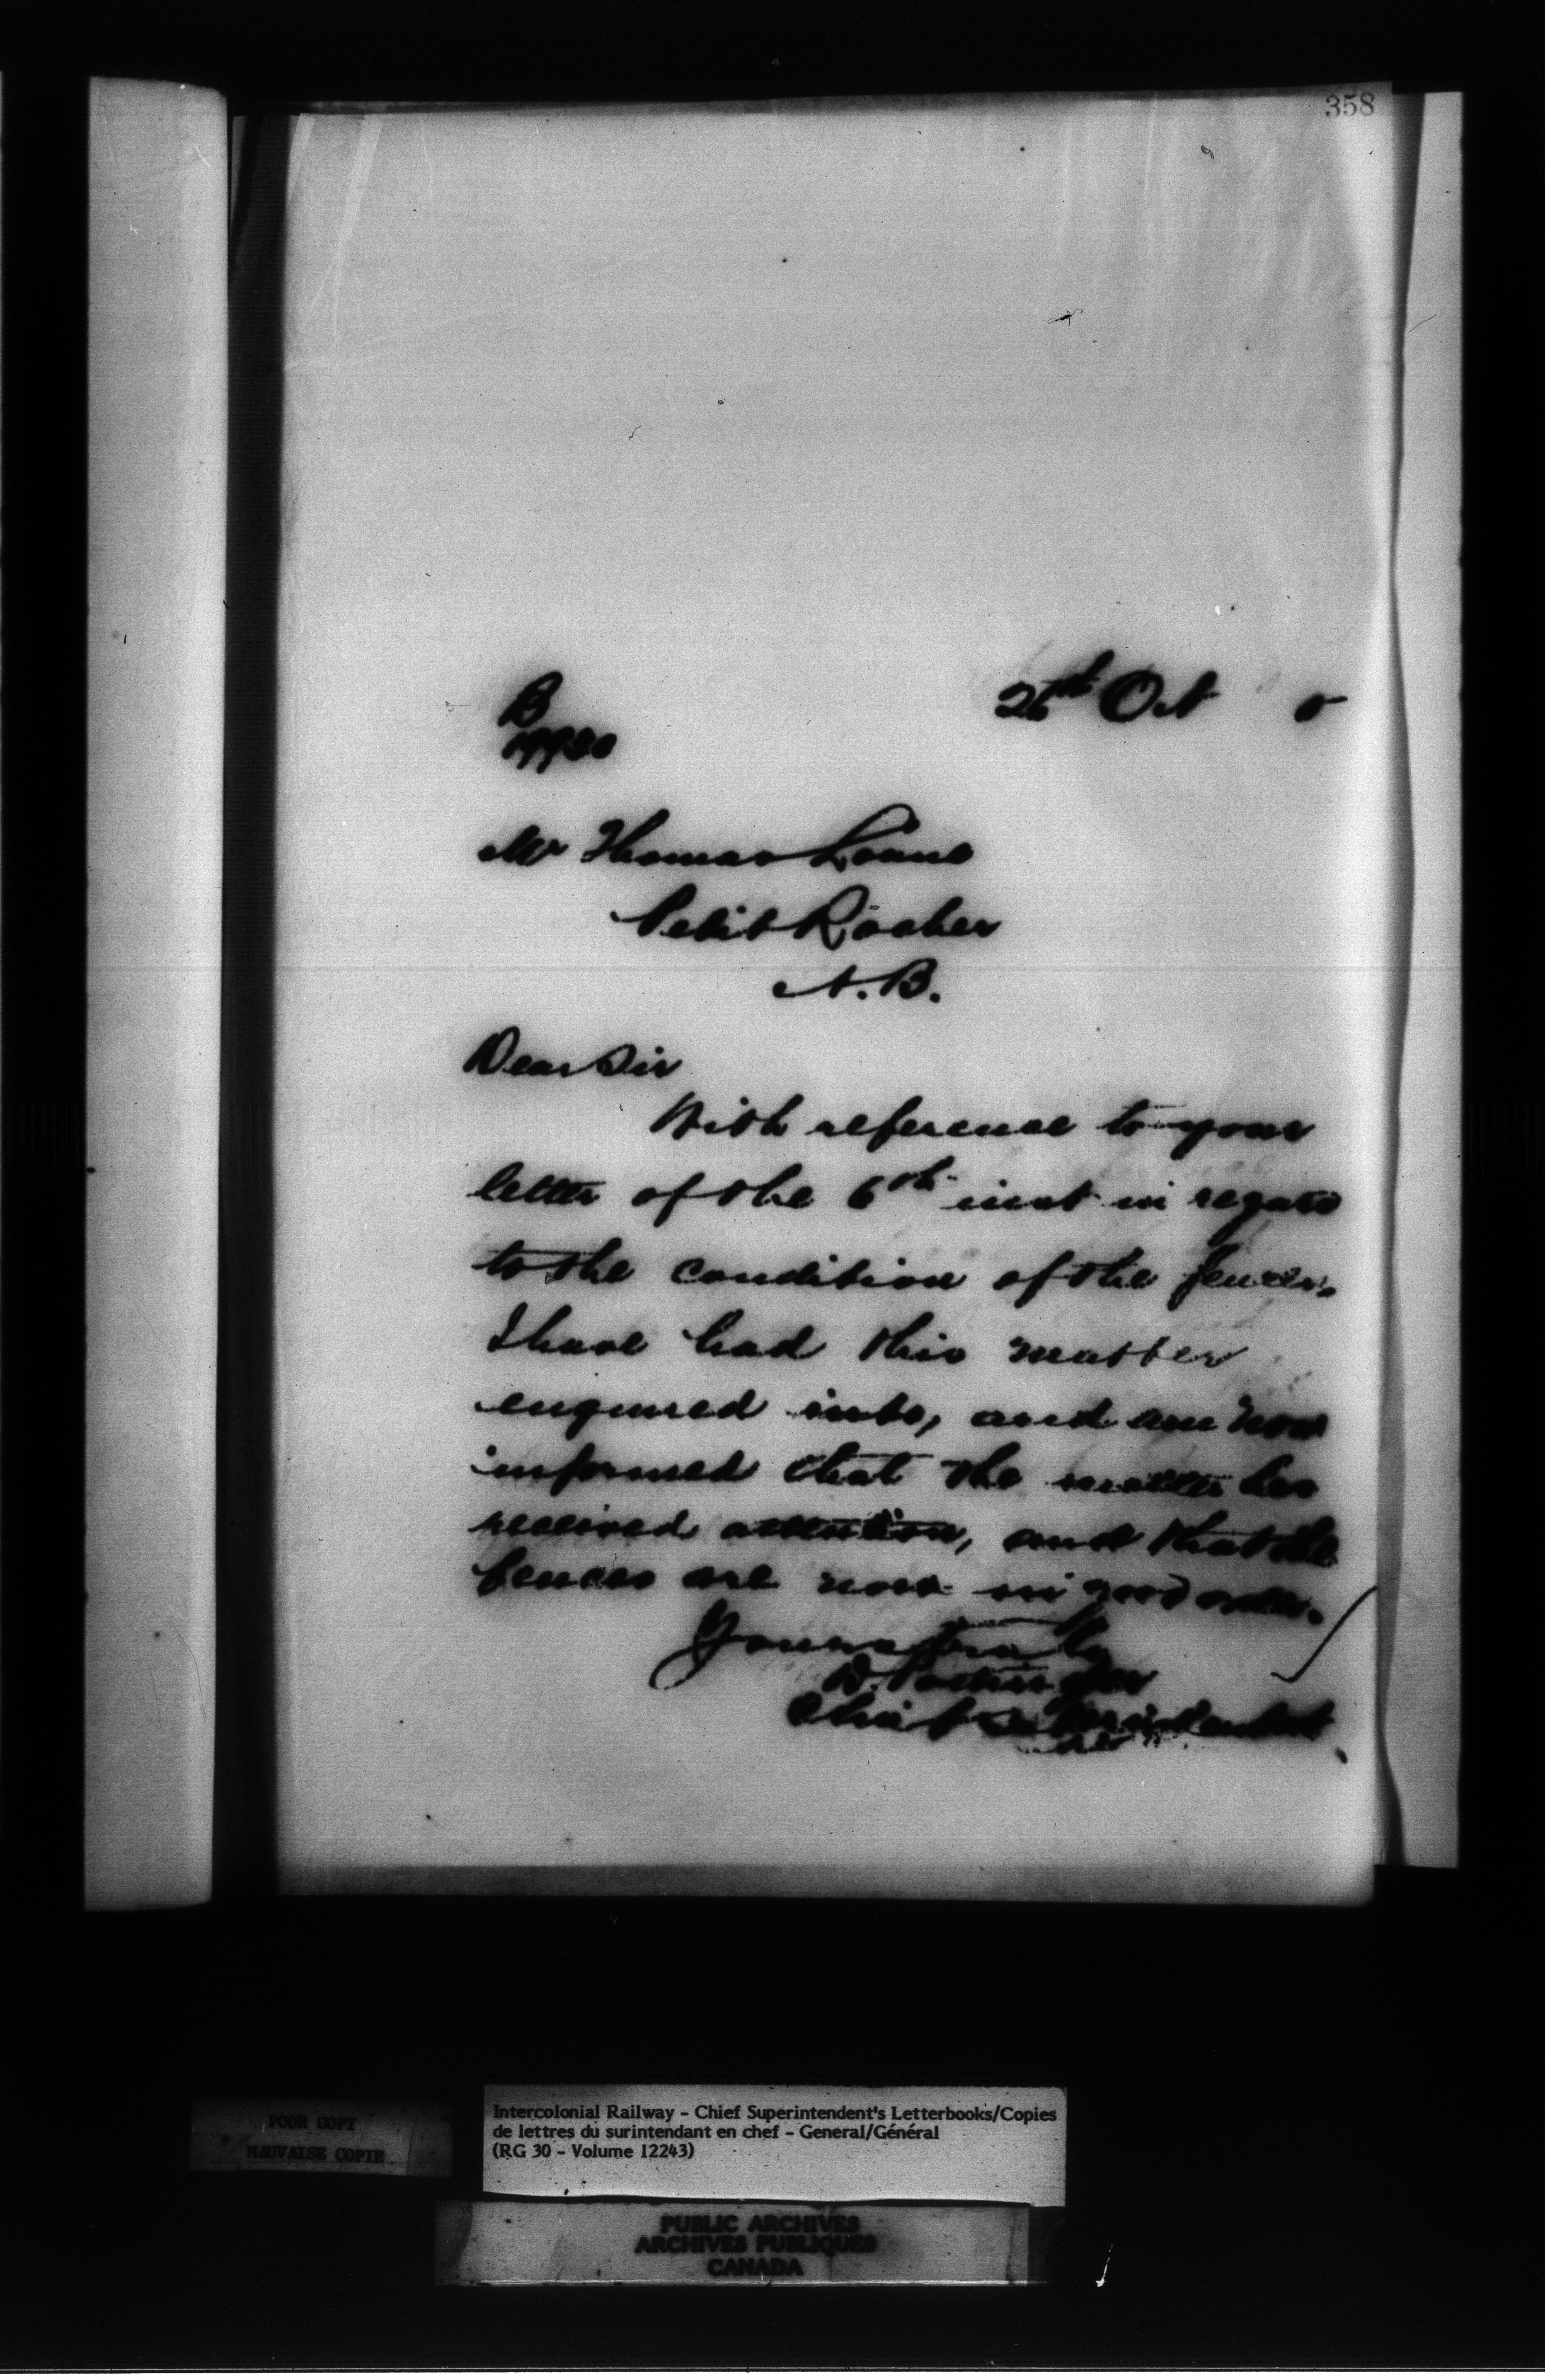 358
26th Oct 5
B
Mr Thomas
Petit Rocher
N.B.
Dear Sir
With reference to your
letter of the 6th inst in regard
to the condition of the fences,
I have had this matter
enquired into, and am now
informed that the matter has
received attention, and that the
fences are now in good order.
Yours truly
D. Pottinger
Chief Superintendent
POOR COPY
MAUVAISE COPIE
Intercolonial Railway - Chief Superintendent's Letterbooks/Copies
de lettres du surintendant en chef - General/Général
(RG 30 - Volume 12243)
PUBLIC ARCHIVES
ARCHIVES PUBLIQUES
CANADA